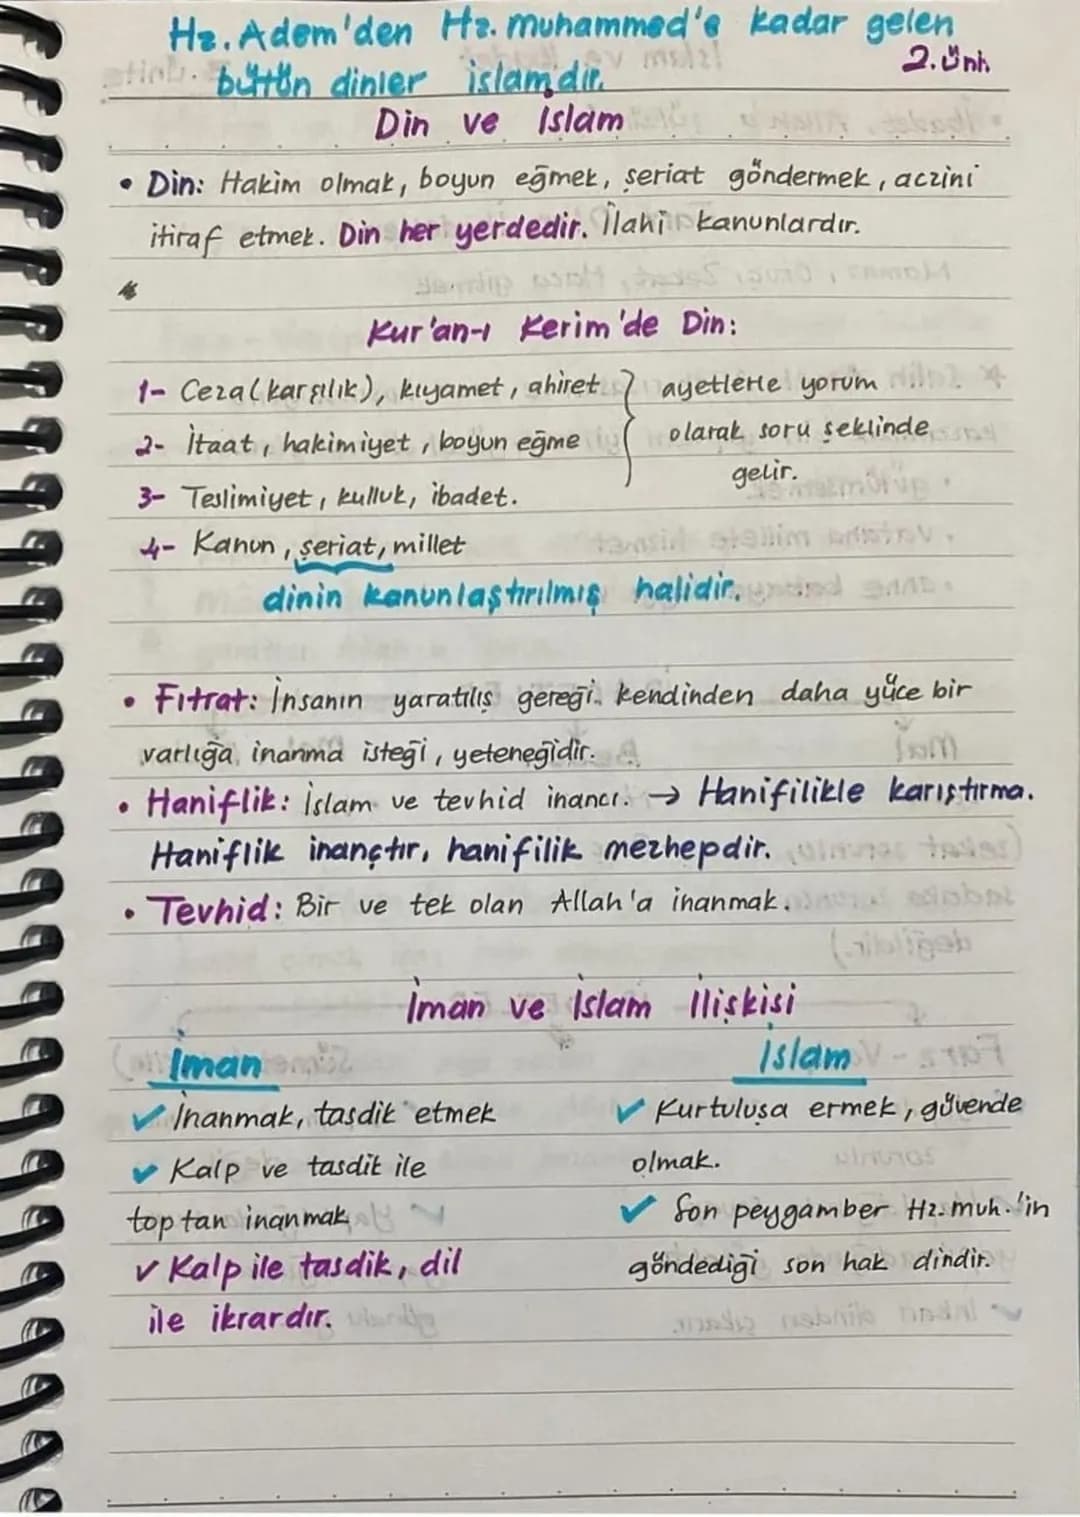 Hz. Adem'den Hz. Muhammed'e kadar gelen
bütün dinler islamdır.
2. Ünt.
Din ve İslam
• Din: Hakim olmak, boyun eğmek, şeriat göndermek, aczini
itiraf etmek. Din her yerdedir. İlahi kanunlardır.
Kur'an-ı Kerim'de Din:
1- Ceza (karşılık), kıyamet, ahiret
2- İtaat, hakimiyet, boyun eğme
3- Teslimiyet, kulluk, ibadet.
ayetlerle yorum
olarak soru şeklinde
gelir.
4- Kanun, şeriat, millet
dinin kanunlaştırılmış halidir.
• Fıtrat: İnsanın yaratılış gereği kendinden daha yüce bir
varlığa inanma isteği, yeteneğidir.
• Haniflik: İslam ve tevhid inancı. → Hanifilikle karıştırma.
Haniflik inançtır, hanifilik mezhepdir.
• Tevhid: Bir ve tek olan Allah'a inanmak.
İman ve İslam İlişkisi
İman
✓ İnanmak, tasdik etmek
✓ Kalp ve tasdik ile
toptan inanmak
✓ Kalp ile tasdik, dil
ile ikrardır.
İslam
✓ Kurtuluşa ermek, güvende
olmak.
✓ Son peygamber Hz. Muh.'in
göndediği son hak dindir.